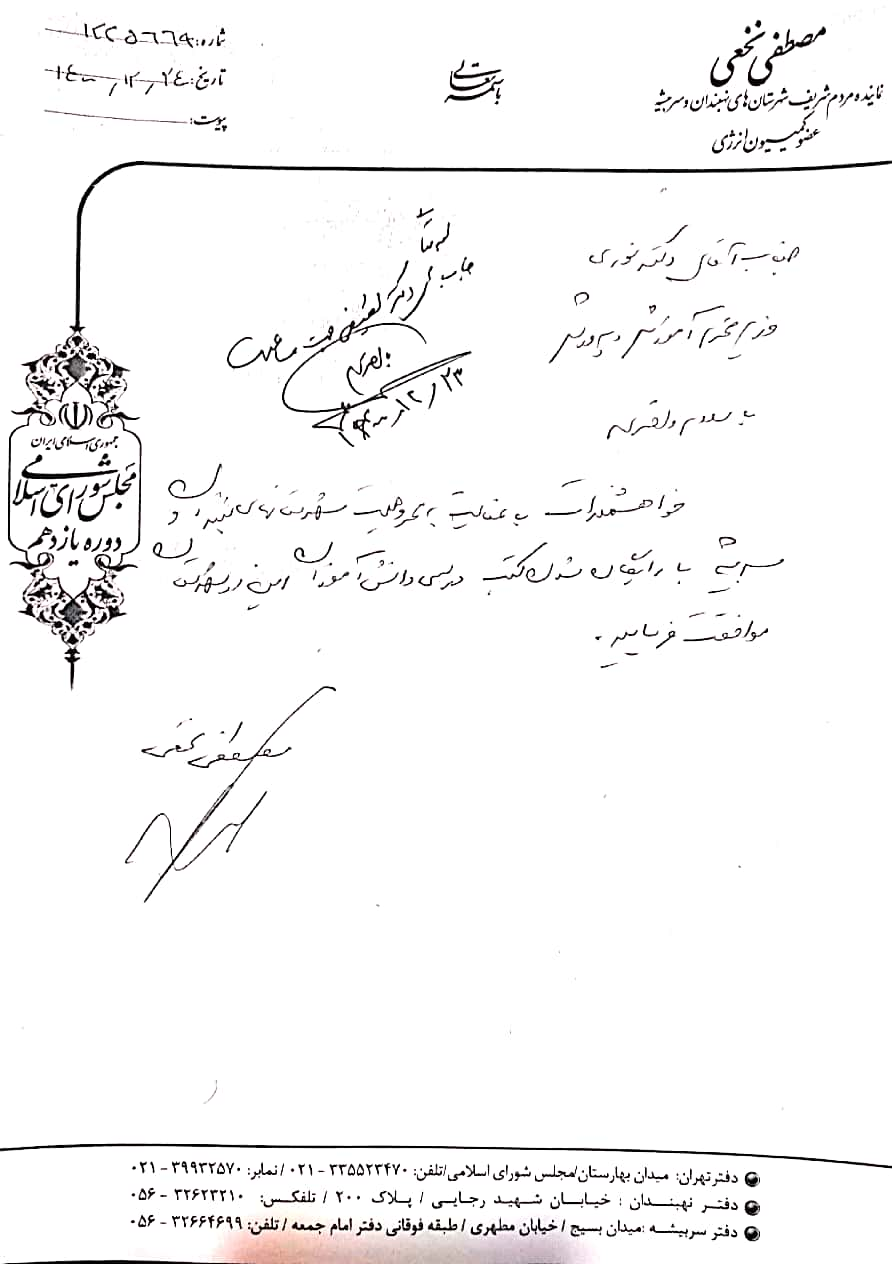 مصطفی نخعی
نماینده مردم شریف شهرستان‌های نهبندان و سربیشه
عضو کمیسیون انرژی
باسمه تعالی
شماره: ۱۲۲۵۶۶۹
تاریخ: ۱۴۰۰/۱۲/۲۴
پیوست:
جمهوری اسلامی ایران
مجلس شورای اسلامی
دوره یازدهم
جناب آقای دکتر نوری
وزیر محترم آموزش و پرورش
با سلام و احترام
خواهشمند است با عنایت به محرومیت شهرستانهای نهبندان و
سربیشه با رایگان شدن کتب درسی دانش آموزان این دو شهرستان
موافقت فرمایید.
جناب دکتر لطیفی جهت
۱۴۰۰/۱۲/۲۳
مصطفی نخعی
دفتر تهران: میدان بهارستان/مجلس شورای اسلامی/تلفن: ۳۳۵۵۲۳۴۷۰ - ۰۲۱ / نمابر: ۳۹۹۳۲۵۷۰ - ۰۲۱
دفتر نهبندان : خیابان شهید رجایی / پلاک ۲۰۰ / تلفکس: ۳۲۶۲۳۲۱۰ - ۰۵۶
دفتر سربیشه :میدان بسیج / خیابان مطهری / طبقه فوقانی دفتر امام جمعه / تلفن: ۳۲۶۶۴۶۹۹ - ۰۵۶